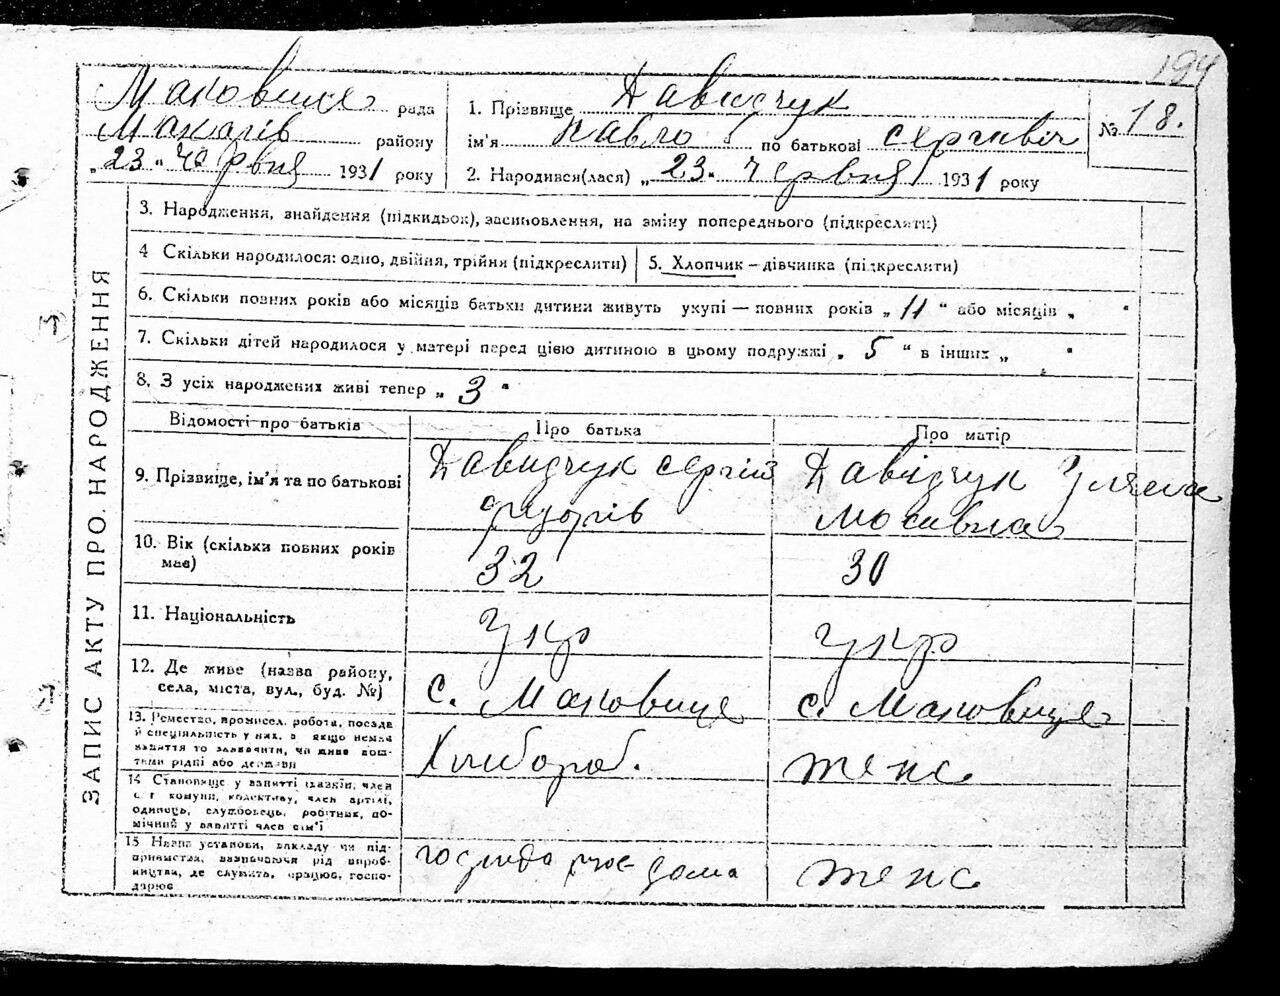 194
Маковище рада
Макарів району
„23“ червня 1931 року
1. Прізвище Давидчук
ім'я Павло по батькові Сергієвіч
2. Народився(лася) „23“ червня 1931 року
№ 18.
ЗАПИС АКТУ ПРО НАРОДЖЕННЯ
3. Народження, знайдення (підкидьок), засиновлення, на зміну попереднього (підкреслити)
4 Скільки народилося: одно, двійня, трійня (підкреслити)
5. Хлопчик – дівчинка (підкреслити)
6. Скільки повних років або місяців батьки дитини живуть укупі — повних років „ 11 “ або місяців „ “
7. Скільки дітей народилося у матері перед цією дитиною в цьому подружжі „ 5 “ в інших „ “
8. З усіх народжених живі тепер „ 3 “
Відомості про батьків
Про батька
Про матір
9. Прізвище, ім'я та по батькові
Давидчук Сергій
Давідчук Уляна
10. Вік (скільки повних років
має)
32
30
11. Національність
Укр
Укр
12. Де живе (назва району,
села, міста, вул., буд. №)
с. Маковище
с. Маковище
13. Ремество, промисел, робота, посада
й спеціяльність у них, а якщо немає
заняття то зазначити, чи живе кош-
тами рідні або держави
Хлібороб.
тенс
14 Становище у занятті (хазяїн, член
с. г комуни, колективу, член артілі,
одинець, службовець, робітник, по-
мічний у занятті член сім'ї
15 Назва установи, закладу чи під-
приємства, зазначаючи рід вироб-
ництва, де служить, працює, госпо-
дарює
дома
тенс